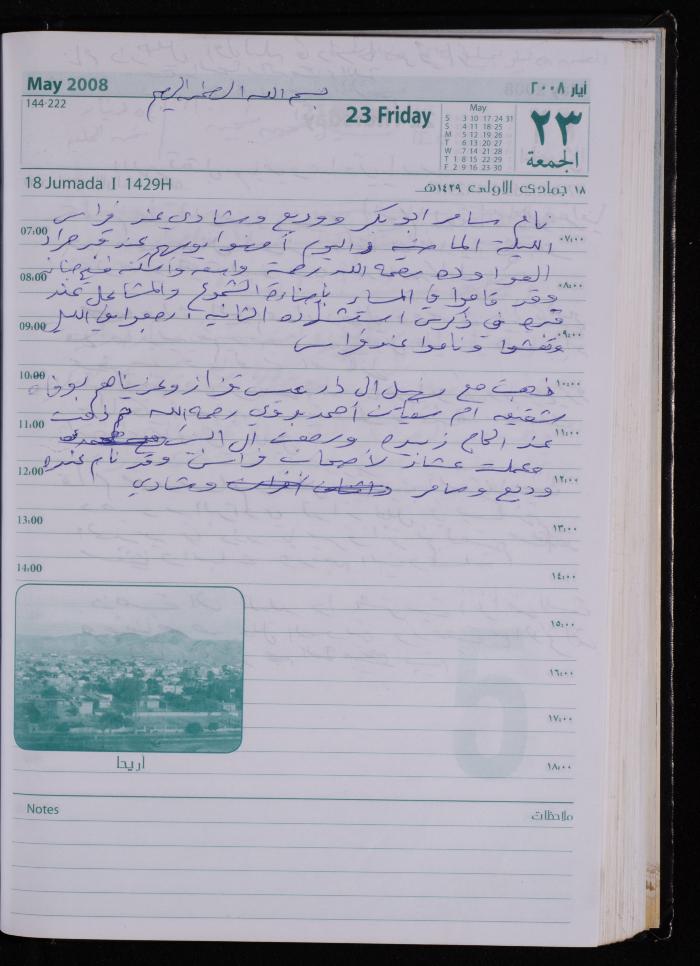 May 2008
أيار ٢٠٠٨
144-222
بسم الله الرحمن الرحيم
23 Friday
May
S 3 10 17 24 31
S 4 11 18 25
M 5 12 19 26
T 6 13 20 27
W 7 14 21 28
T 1 8 15 22 29
F 2 9 16 23 30
٢٣
الجمعة
18 Jumada I 1429H
١٨ جمادى الاولى ١٤٢٩هـ
نام سامر ابو بكر ووديع وشادي عند فراس
07:00 ٠٧:٠٠
الليلة الماضية واليوم أمضوا يومهم عند قبر مراد
رحمه الله رحمة واسعة وأسكنه فسيح جنانه
08:00 ٠٨:٠٠
وقد قاموا في المساء بإضاءة الشموع والمشاعل عند
قبره في ذكرى استشهاده الثانية في الليل
09:00 ٠٩:٠٠
وتعشوا وناموا عند فراس
10:00 ١٠:٠٠
ذهبت مع الى دار وعزيناهم بوفاة
شقيقه ام سفيان أحمد رحمه الله ثم ذهبت
11:00 ١١:٠٠
عند الحاج ورجعت الى البيت
وعملت عشاء لأصحاب فراس وقد نام عنده
12:00 ١٢:٠٠
وديع وسامر وشادي
13:00 ١٣:٠٠
14:00 ١٤:٠٠
١٥:٠٠
١٦:٠٠
١٧:٠٠
أريحا
١٨:٠٠
Notes
ملاحظات